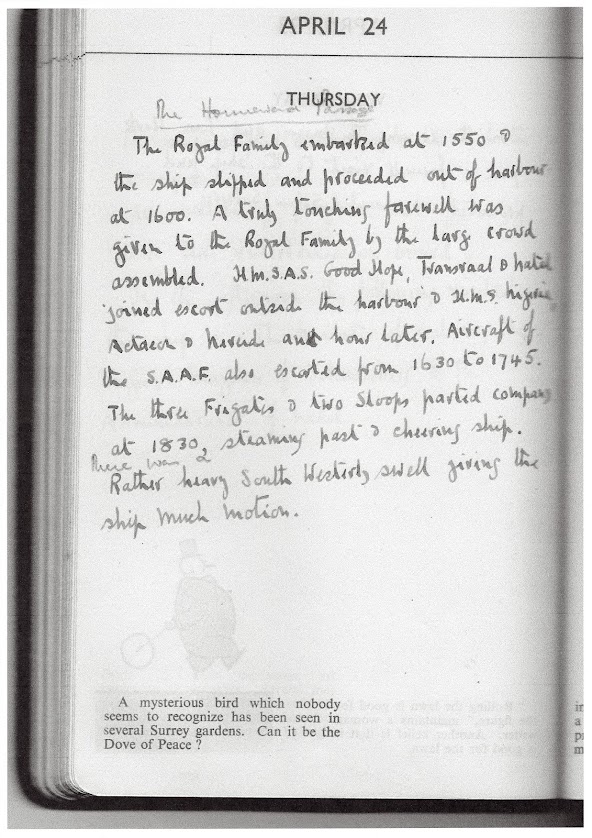 APRIL 24
THURSDAY
The Homeward Passage
The Royal Family embarked at 1550 &
the ship slipped and proceeded out of harbour
at 1600. A truly touching farewell was
given to the Royal Family by the large crowd
assembled. H.M.S.A.S. Good Hope, Transvaal & Natal
joined escort outside the harbour & H.M.S. Nigeria
Actaeon & Nereide an hour later. Aircraft of
the S.A.A.F. also escorted from 1630 to 1745.
The three Frigates & two Sloops parted company
at 1830, steaming past & cheering ship.
There was a
Rather heavy South Westerly swell giving the
ship much motion.
A mysterious bird which nobody
seems to recognize has been seen in
several Surrey gardens. Can it be the
Dove of Peace ?